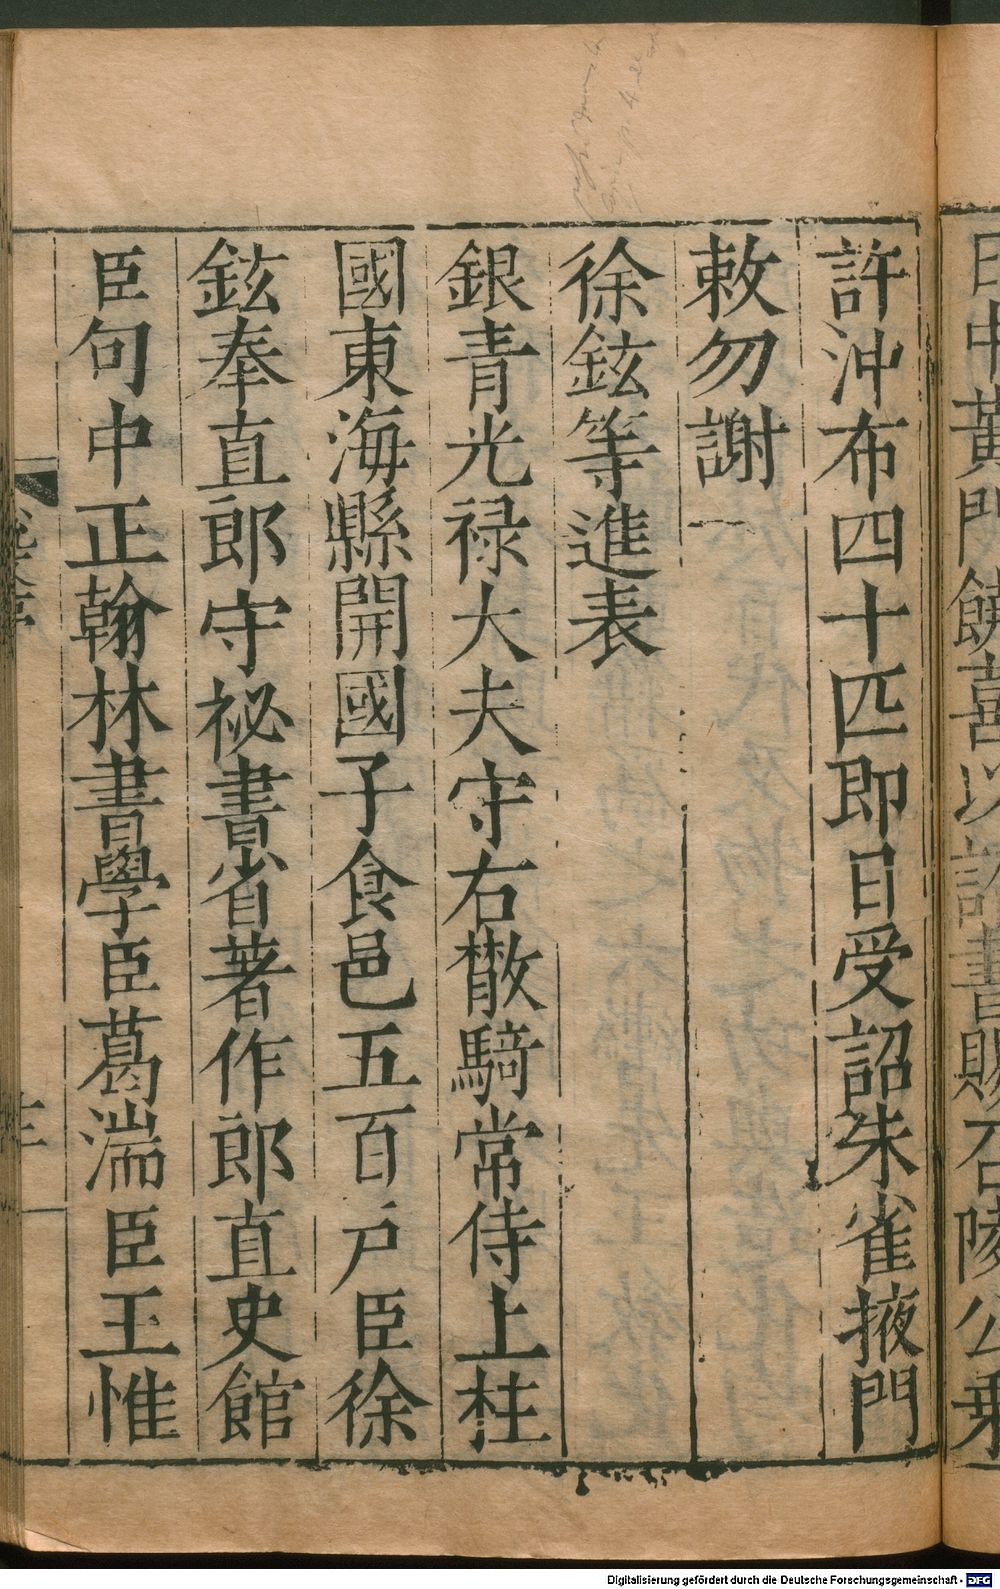 許沖布四十匹即日受詔朱雀掖門
敕勿謝
徐鉉等進表
銀青光禄大夫守右散騎常侍上柱
國東海縣開國子食邑五百户臣徐
鉉奉直郎守祕書省著作郎直史館
臣句中正翰林書學臣葛湍臣王惟
Digitalisierung gefördert durch die Deutsche Forschungsgemeinschaft - DFG